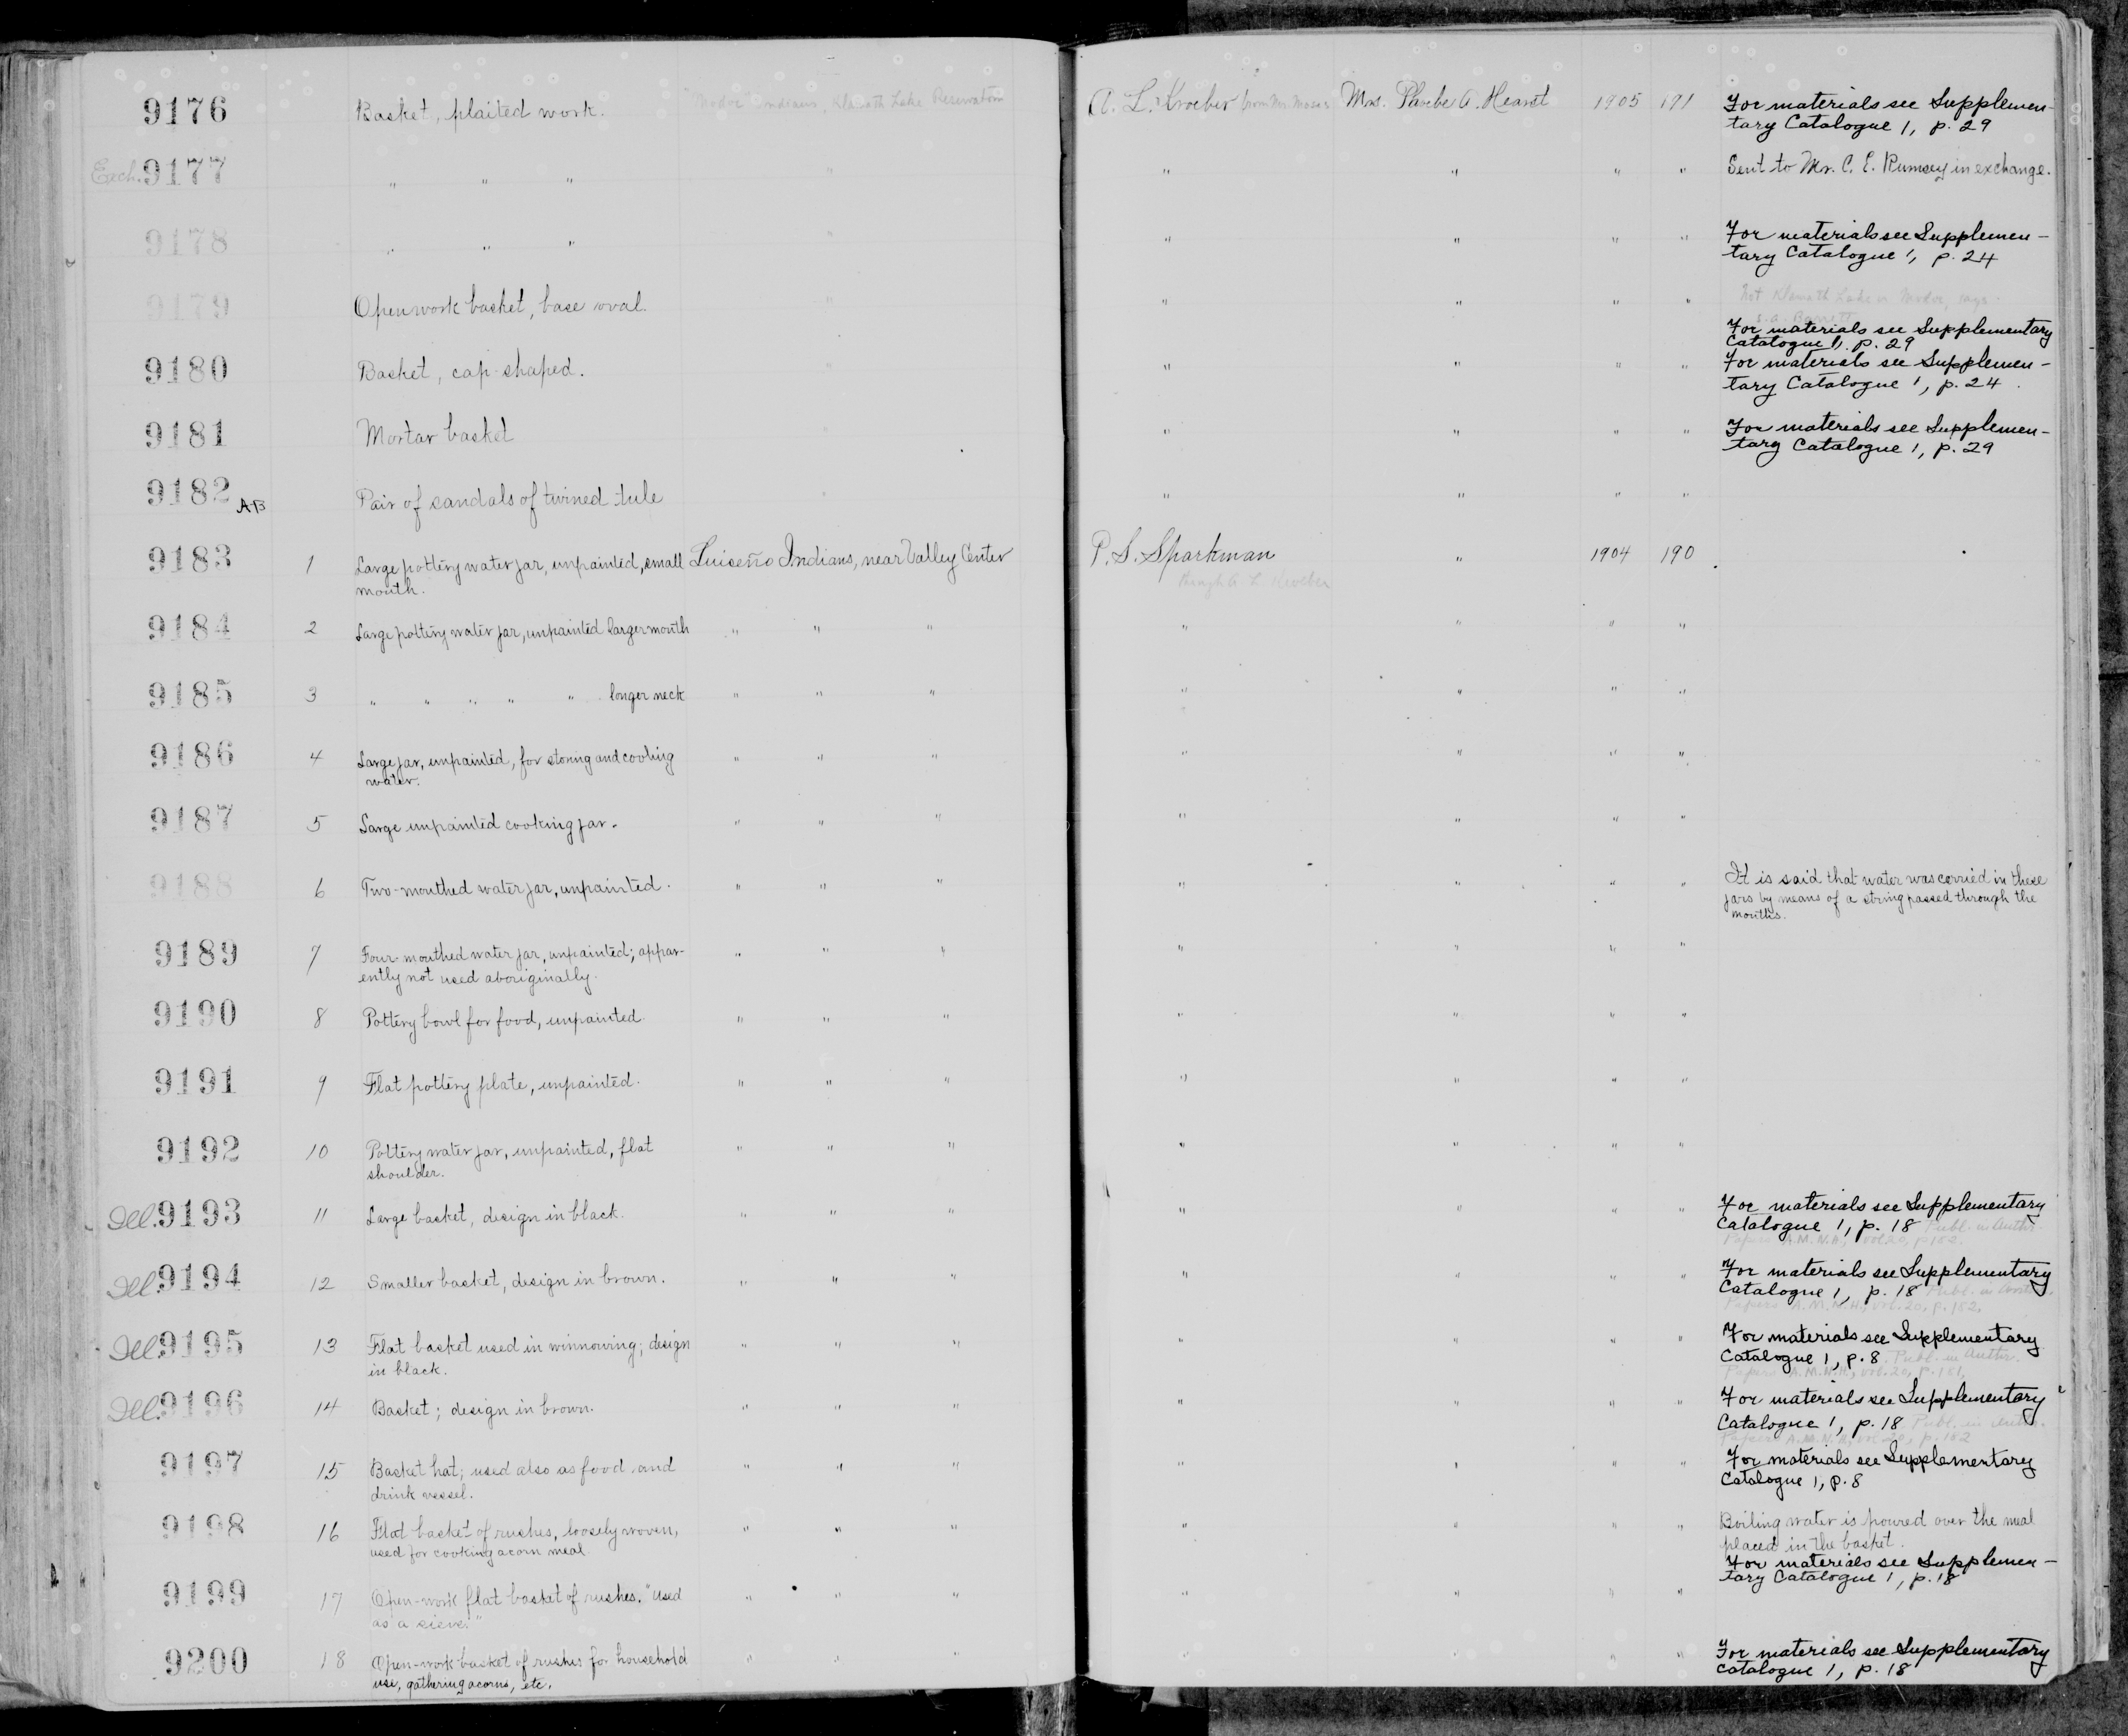 9176 Basket, plaited work. "Modoc" Indians, Klamath Lake Reservation A. L. Kroeber from Mr. Moses Mrs. Phoebe A. Hearst 1905 191 For materials see Supplemen-
tary Catalogue 1, p. 29
Exch. 9177 " " " " " " " " Sent to Mr. C. E. Rumsey in exchange.
9178 " " " " " " " " For materials see Supplemen-
tary Catalogue 1, p. 24
9179 Openwork basket, base oval. " " " " " Not Klamath Lake or Modoc, says
S. A. Barrett
For materials see Supplementary
Catalogue 1, p. 29
9180 Basket, cap shaped. " " " " " For materials see Supplemen-
tary Catalogue 1, p. 24.
9181 Mortar basket " " " " For materials see Supplemen-
tary Catalogue 1, p. 29
9182 A-B Pair of sandals of twined tule " " " " "
9183 1 Large pottery water jar, unpainted, small Luiseño Indians, near Valley Center P. S. Sparkman " 1904 190
mouth. through A. L. Kroeber
9184 2 Large pottery water jar, unpainted larger mouth " " " " " " "
9185 3 " " " " " longer neck " " " " " " "
9186 4 Large jar, unpainted, for storing and cooling " " " " " " "
water.
9187 5 Large unpainted cooking jar. " " " " " " "
9188 6 Two-mouthed water jar, unpainted. " " " " " " " It is said that water was carried in these
jars by means of a string passed through the
mouths.
9189 7 Four-mouthed water jar, unpainted; appar- " " " " " " "
ently not used aboriginally.
9190 8 Pottery bowl for food, unpainted. " " " " " " "
9191 9 Flat pottery plate, unpainted. " " " " " " "
9192 10 Pottery water jar, unpainted, flat " " " " " " "
shoulder.
Ill. 9193 11 Large basket, design in black. " " " " " " " For materials see Supplementary
Catalogue 1, p. 18 Publ. in Anthr.
Papers A.M.N.H., vol. 20, p. 182.
Ill. 9194 12 Smaller basket, design in brown. " " " " " " " For materials see Supplementary
Catalogue 1, p. 18 Publ. in Anthr.
Papers A.M.N.H., vol. 20, p. 182.
Ill. 9195 13 Flat basket used in winnowing; design " " " " " " " For materials see Supplementary
in black. Catalogue 1, p. 8 Publ. in Anthr.
Papers A.M.N.H., vol. 20, p. 181.
Ill. 9196 14 Basket; design in brown. " " " " " " " For materials see Supplementary
Catalogue 1, p. 18 Publ. in Anthr.
Papers A.M.N.H., vol. 20, p. 182
9197 15 Basket hat; used also as food and " " " " " " " For materials see Supplementary
drink vessel. Catalogue 1, p. 8
9198 16 Flat basket of rushes, loosely woven, " " " " " " " Boiling water is poured over the meal
used for cooking acorn meal. placed in the basket.
For materials see Supplemen-
tary Catalogue 1, p. 18
9199 17 Open-work flat basket of rushes. "Used " " " " " " "
as a sieve."
9200 18 Open-work basket of rushes for household " " " " " " " For materials see Supplementary
use, gathering acorns, etc. Catalogue 1, p. 18